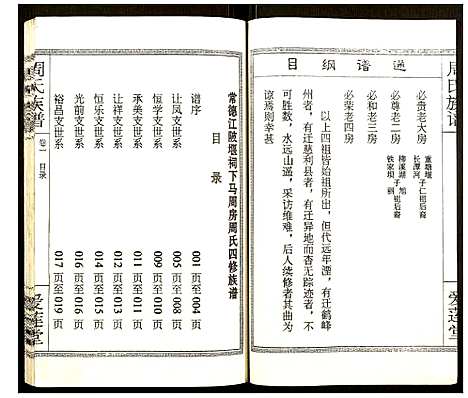 周氏族谱
爱莲堂
目纲谱通
必贵老大房
董塘堰 子仁祖后裔
长潭河
必尊老二房
柳溪湖 子旭祖后裔
铁家坝 子丽
必和老三房
必荣老四房
以上四祖皆始祖所出，但代远年湮，有迁鹤峰
州者，有迁慈利县者，有迁异地而杳无踪迹者，不
可胜数，水远山遥，采访维难，后人续修者其曲为
谅焉则幸甚
常德江陂堰祠下马周房周氏四修族谱
目录
谱序 001页至004页
让凤支世系 005页至008页
恒学支世系 009页至010页
承美支世系 010页至011页
让祥支世系 011页至012页
恒乐支世系 012页至013页
光前支世系 013页至016页
裕昌支世系 017页至019页
周氏族谱
卷一
目录
爱莲堂